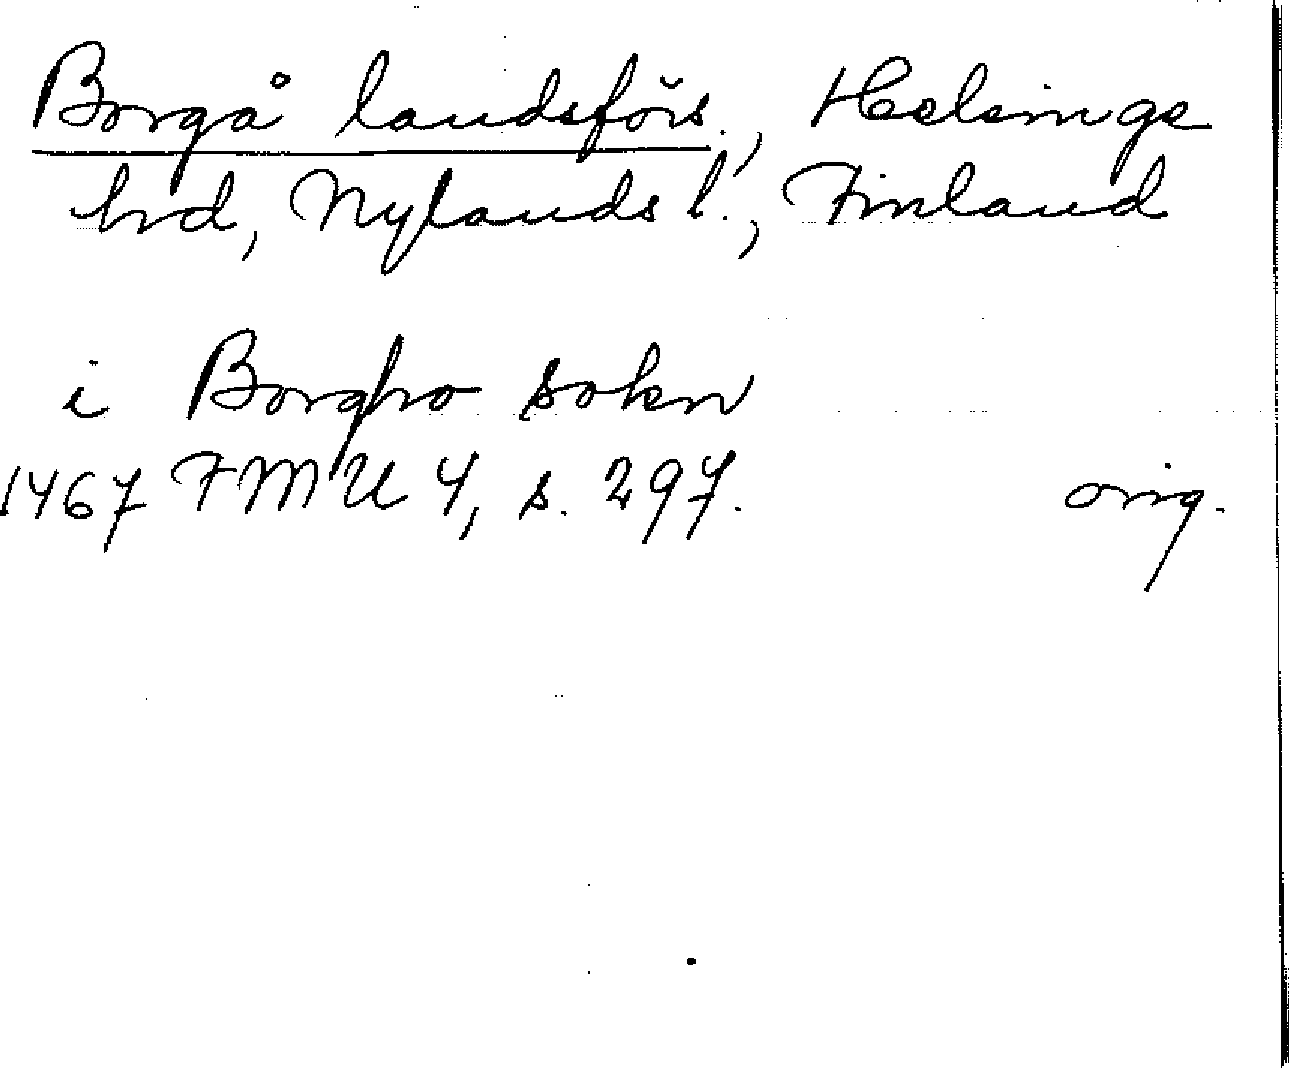 Borgå landsförs., Helsinge
hd, Nylands l., Finland
i Borgho sokn
1467 FMU 4, s. 297. orig.